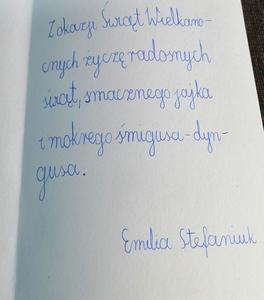 Z okazji Świąt Wielkano-
cnych życzę radosnych
świąt, smacznego jajka
i mokrego śmigusa-dyn-
gusa.
Emilia Stefaniuk